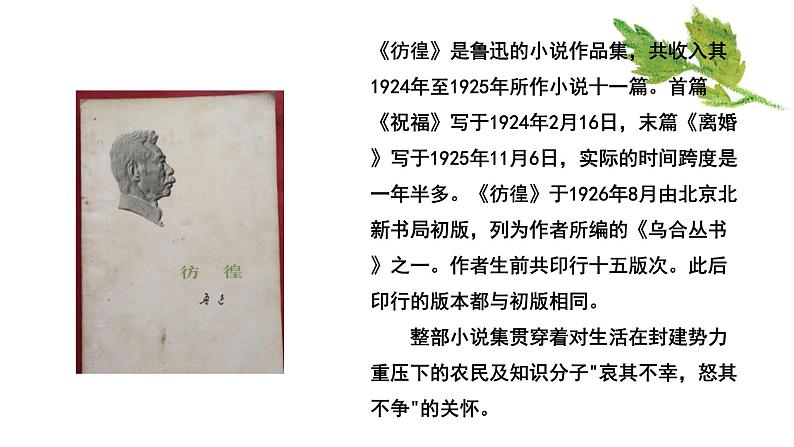 《彷徨》是鲁迅的小说作品集，共收入其
1924年至1925年所作小说十一篇。首篇
《祝福》写于1924年2月16日，末篇《离婚
》写于1925年11月6日，实际的时间跨度是
一年半多。《彷徨》于1926年8月由北京北
新书局初版，列为作者所编的《乌合丛书
》之一。作者生前共印行十五版次。此后
印行的版本都与初版相同。
整部小说集贯穿着对生活在封建势力
重压下的农民及知识分子"哀其不幸，怒其
不争"的关怀。
彷徨
鲁迅